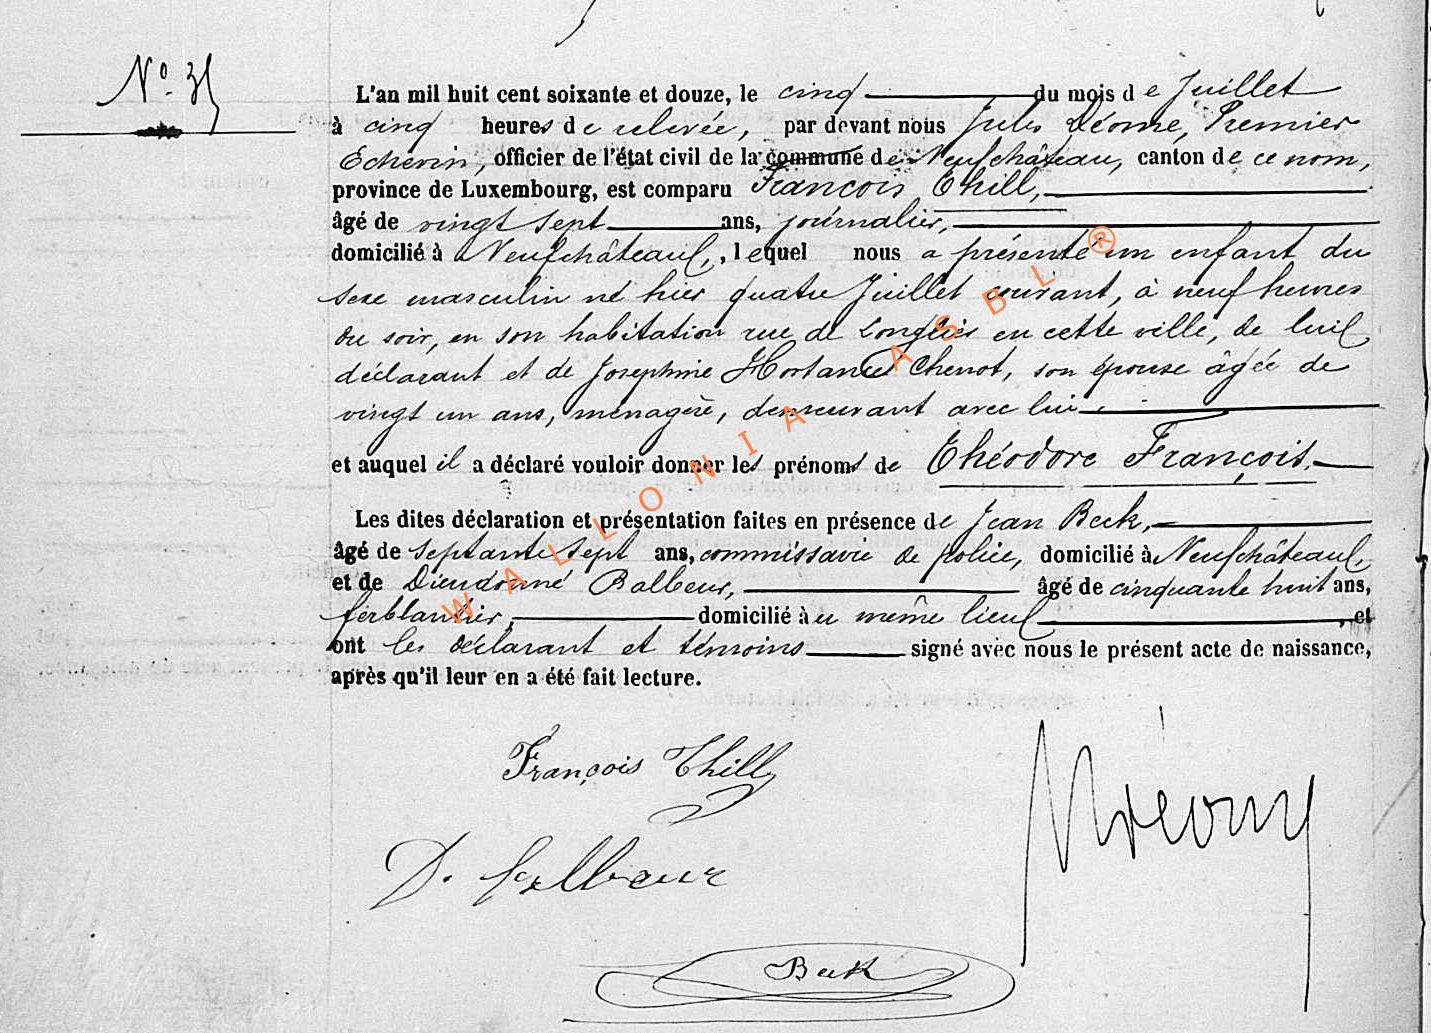 N° 35
L'an mil huit cent soixante et douze, le cinq du mois de Juillet
à cinq heures de relevée, par devant nous Jules Déome, Premier
Echevin, officier de l'état civil de la commune de Neufchâteau, canton de ce nom,
province de Luxembourg, est comparu François Thill,
âgé de vingt sept ans, journalier,
domicilié à Neufchâteau, lequel nous a présenté un enfant du
sexe masculin né hier quatre Juillet courant, à neuf heures
du soir, en son habitation rue de Longlier en cette ville, de lui
déclarant et de Josephine Hortance Chenot, son épouse âgée de
vingt un ans, ménagère, demeurant avec lui.
et auquel il a déclaré vouloir donner les prénoms de Théodore François.
Les dites déclaration et présentation faites en présence de Jean Beck,
âgé de septante sept ans, commissaire de police, domicilié à Neufchâteau,
et de Dieudonné Balbeur, âgé de cinquante huit ans,
ferblantier, domicilié au même lieu, et
ont les déclarant et témoins signé avec nous le présent acte de naissance,
après qu'il leur en a été fait lecture.
François Thill
D. Balbeur
Beck
WALLONIA ASBL ®